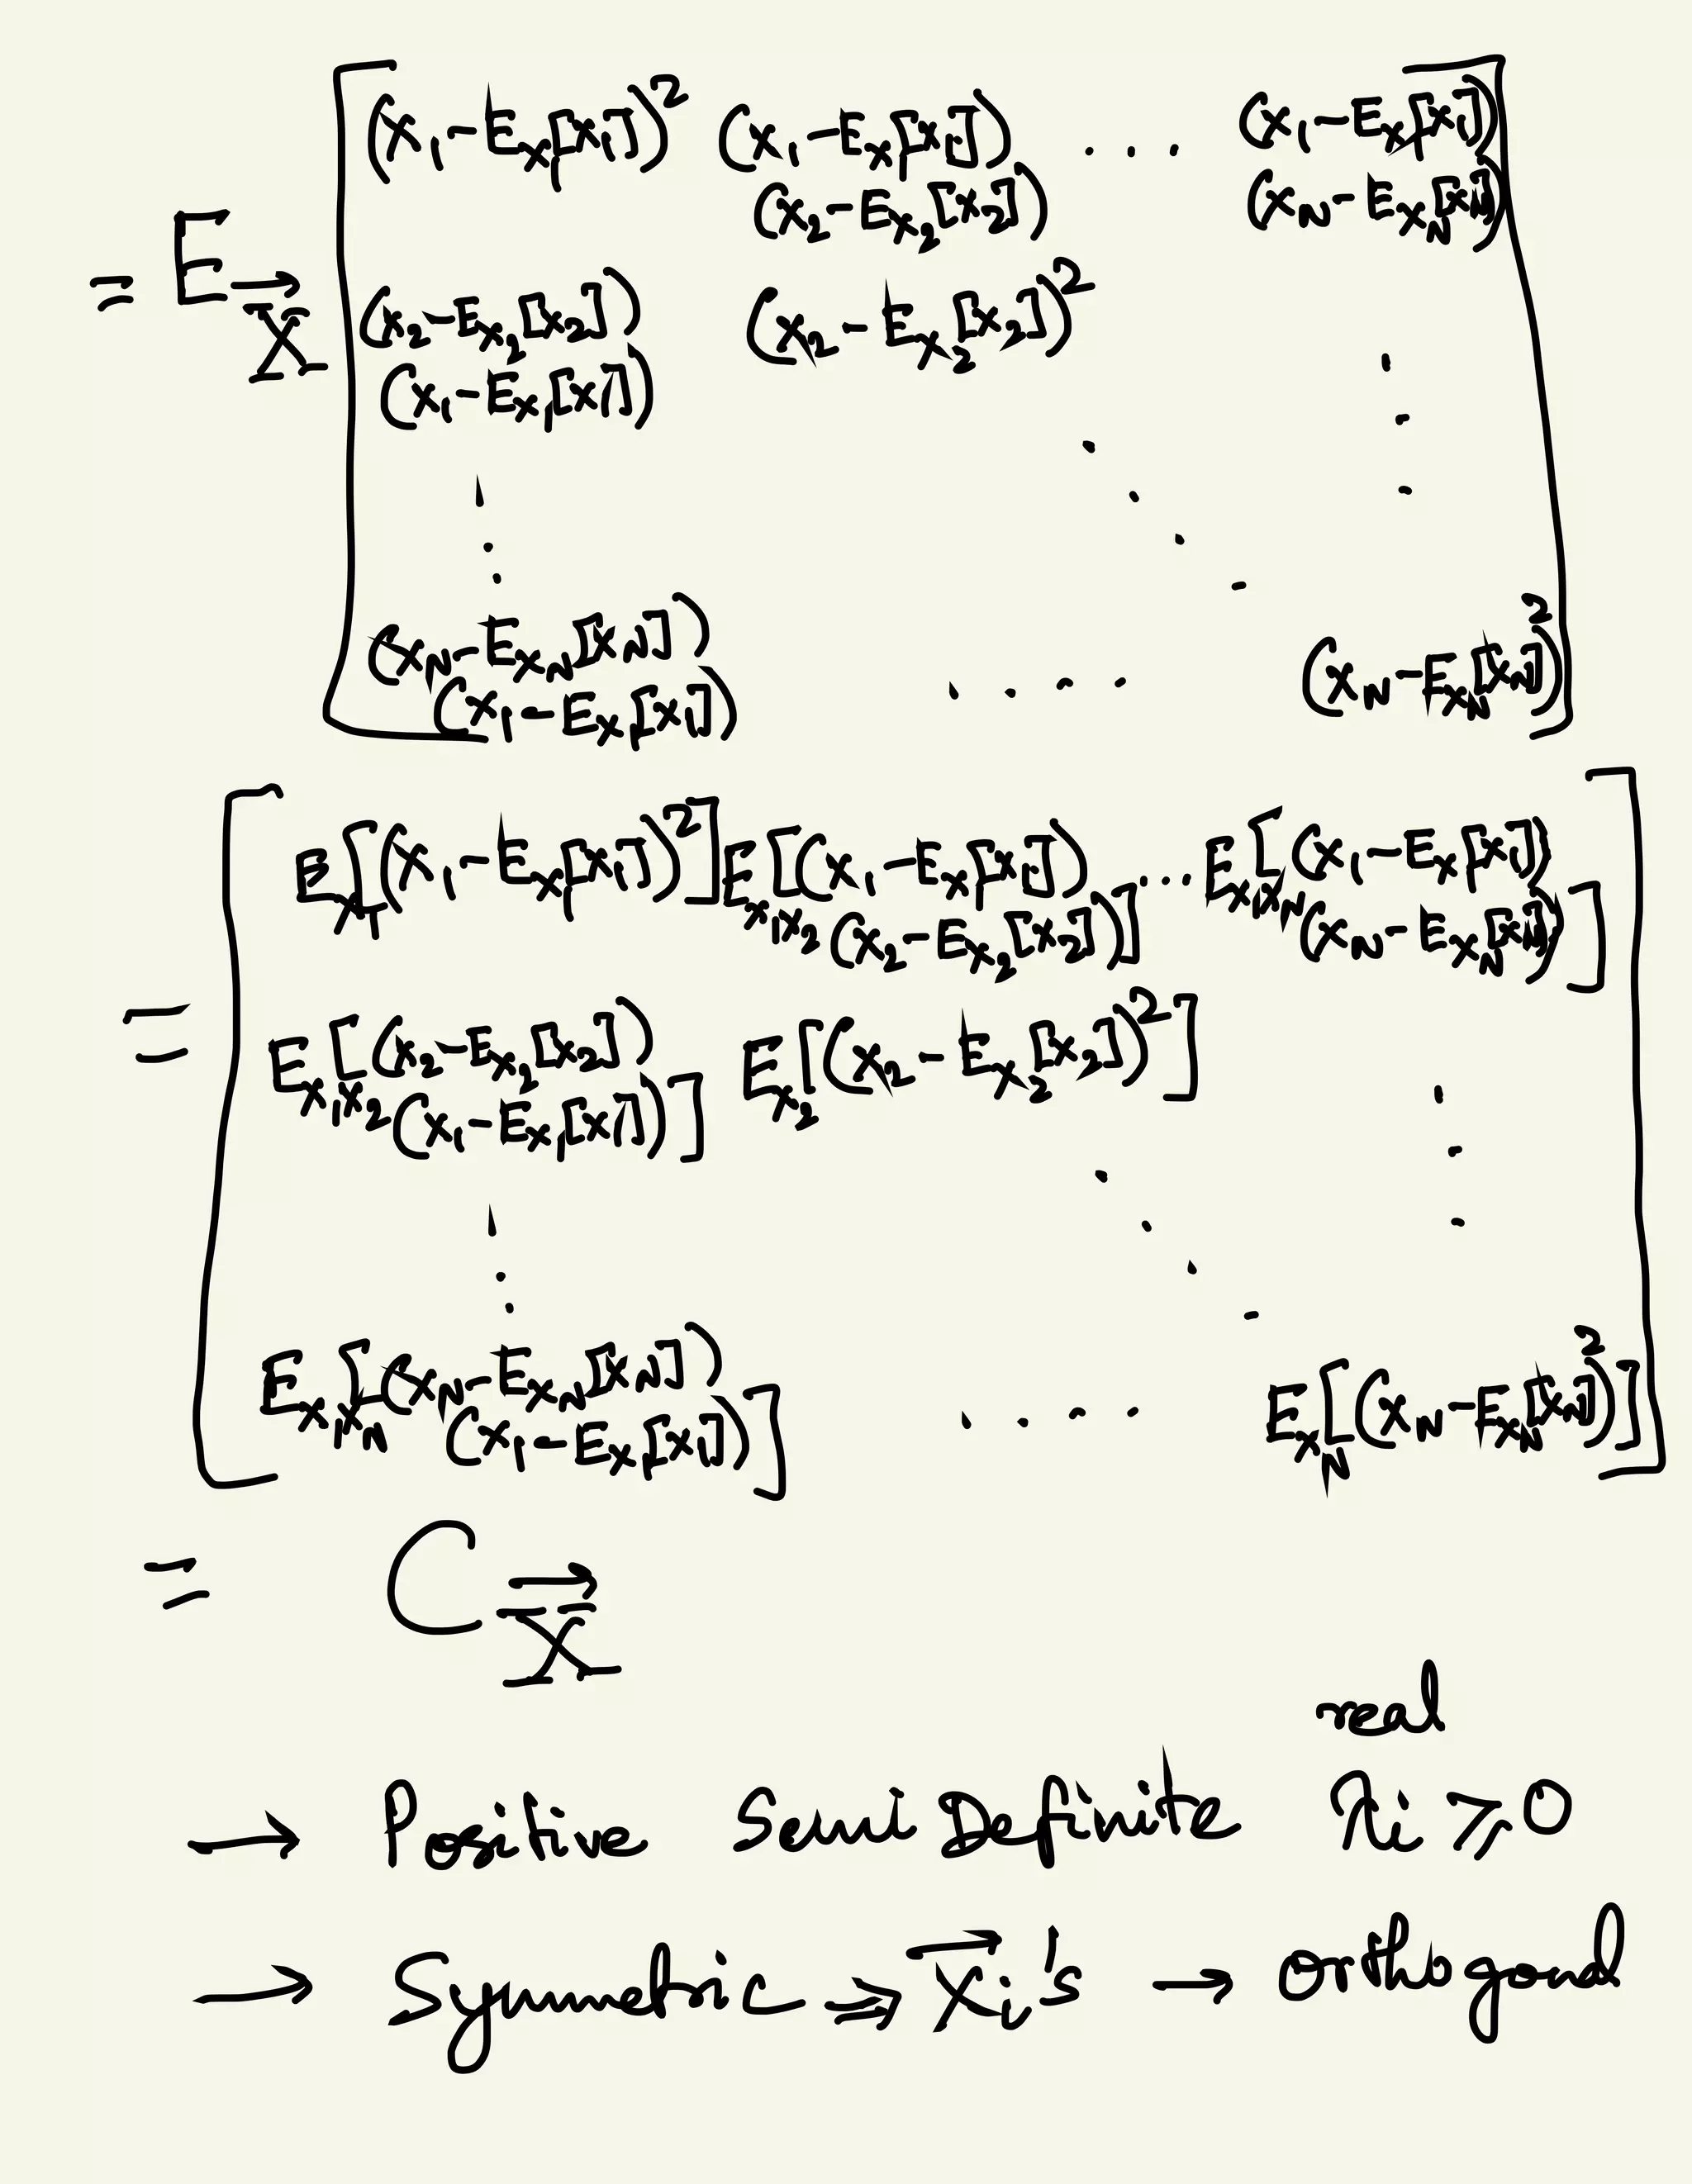 = E_{\vec{X}} [ (X_1 - E_{X_1}[X_1])^2 (X_1 - E_{X_1}[X_1]) ... (X_1 - E_{X_1}[X_1])
(X_2 - E_{X_2}[X_2]) (X_N - E_{X_N}[X_N])
(X_2 - E_{X_2}[X_2]) (X_2 - E_{X_2}[X_2])^2
(X_1 - E_{X_1}[X_1])
(X_N - E_{X_N}[X_N])
(X_1 - E_{X_1}[X_1]) .... (X_N - E_{X_N}[X_N])^2 ]
= [ E_{X_1}[(X_1 - E_{X_1}[X_1])^2] E_{X_1X_2}[(X_1 - E_{X_1}[X_1]) ... E_{X_1X_N}[(X_1 - E_{X_1}[X_1])
(X_2 - E_{X_2}[X_2])] (X_N - E_{X_N}[X_N])]
E_{X_1X_2}[(X_2 - E_{X_2}[X_2]) E_{X_2}[(X_2 - E_{X_2}[X_2])^2]
(X_1 - E_{X_1}[X_1])]
E_{X_1X_N}[(X_N - E_{X_N}[X_N])
(X_1 - E_{X_1}[X_1])] .... E_{X_N}[(X_N - E_{X_N}[X_N])^2] ]
= C_{\vec{X}}
real
→ Positive Semi Definite λi ⩾ 0
→ Symmetric ⇒ \vec{X}_i's → orthogonal